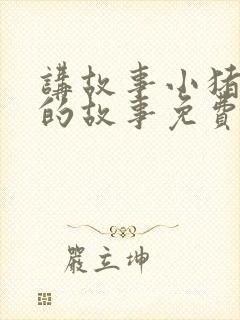 講故事小猪
的故事免費
嚴立坤